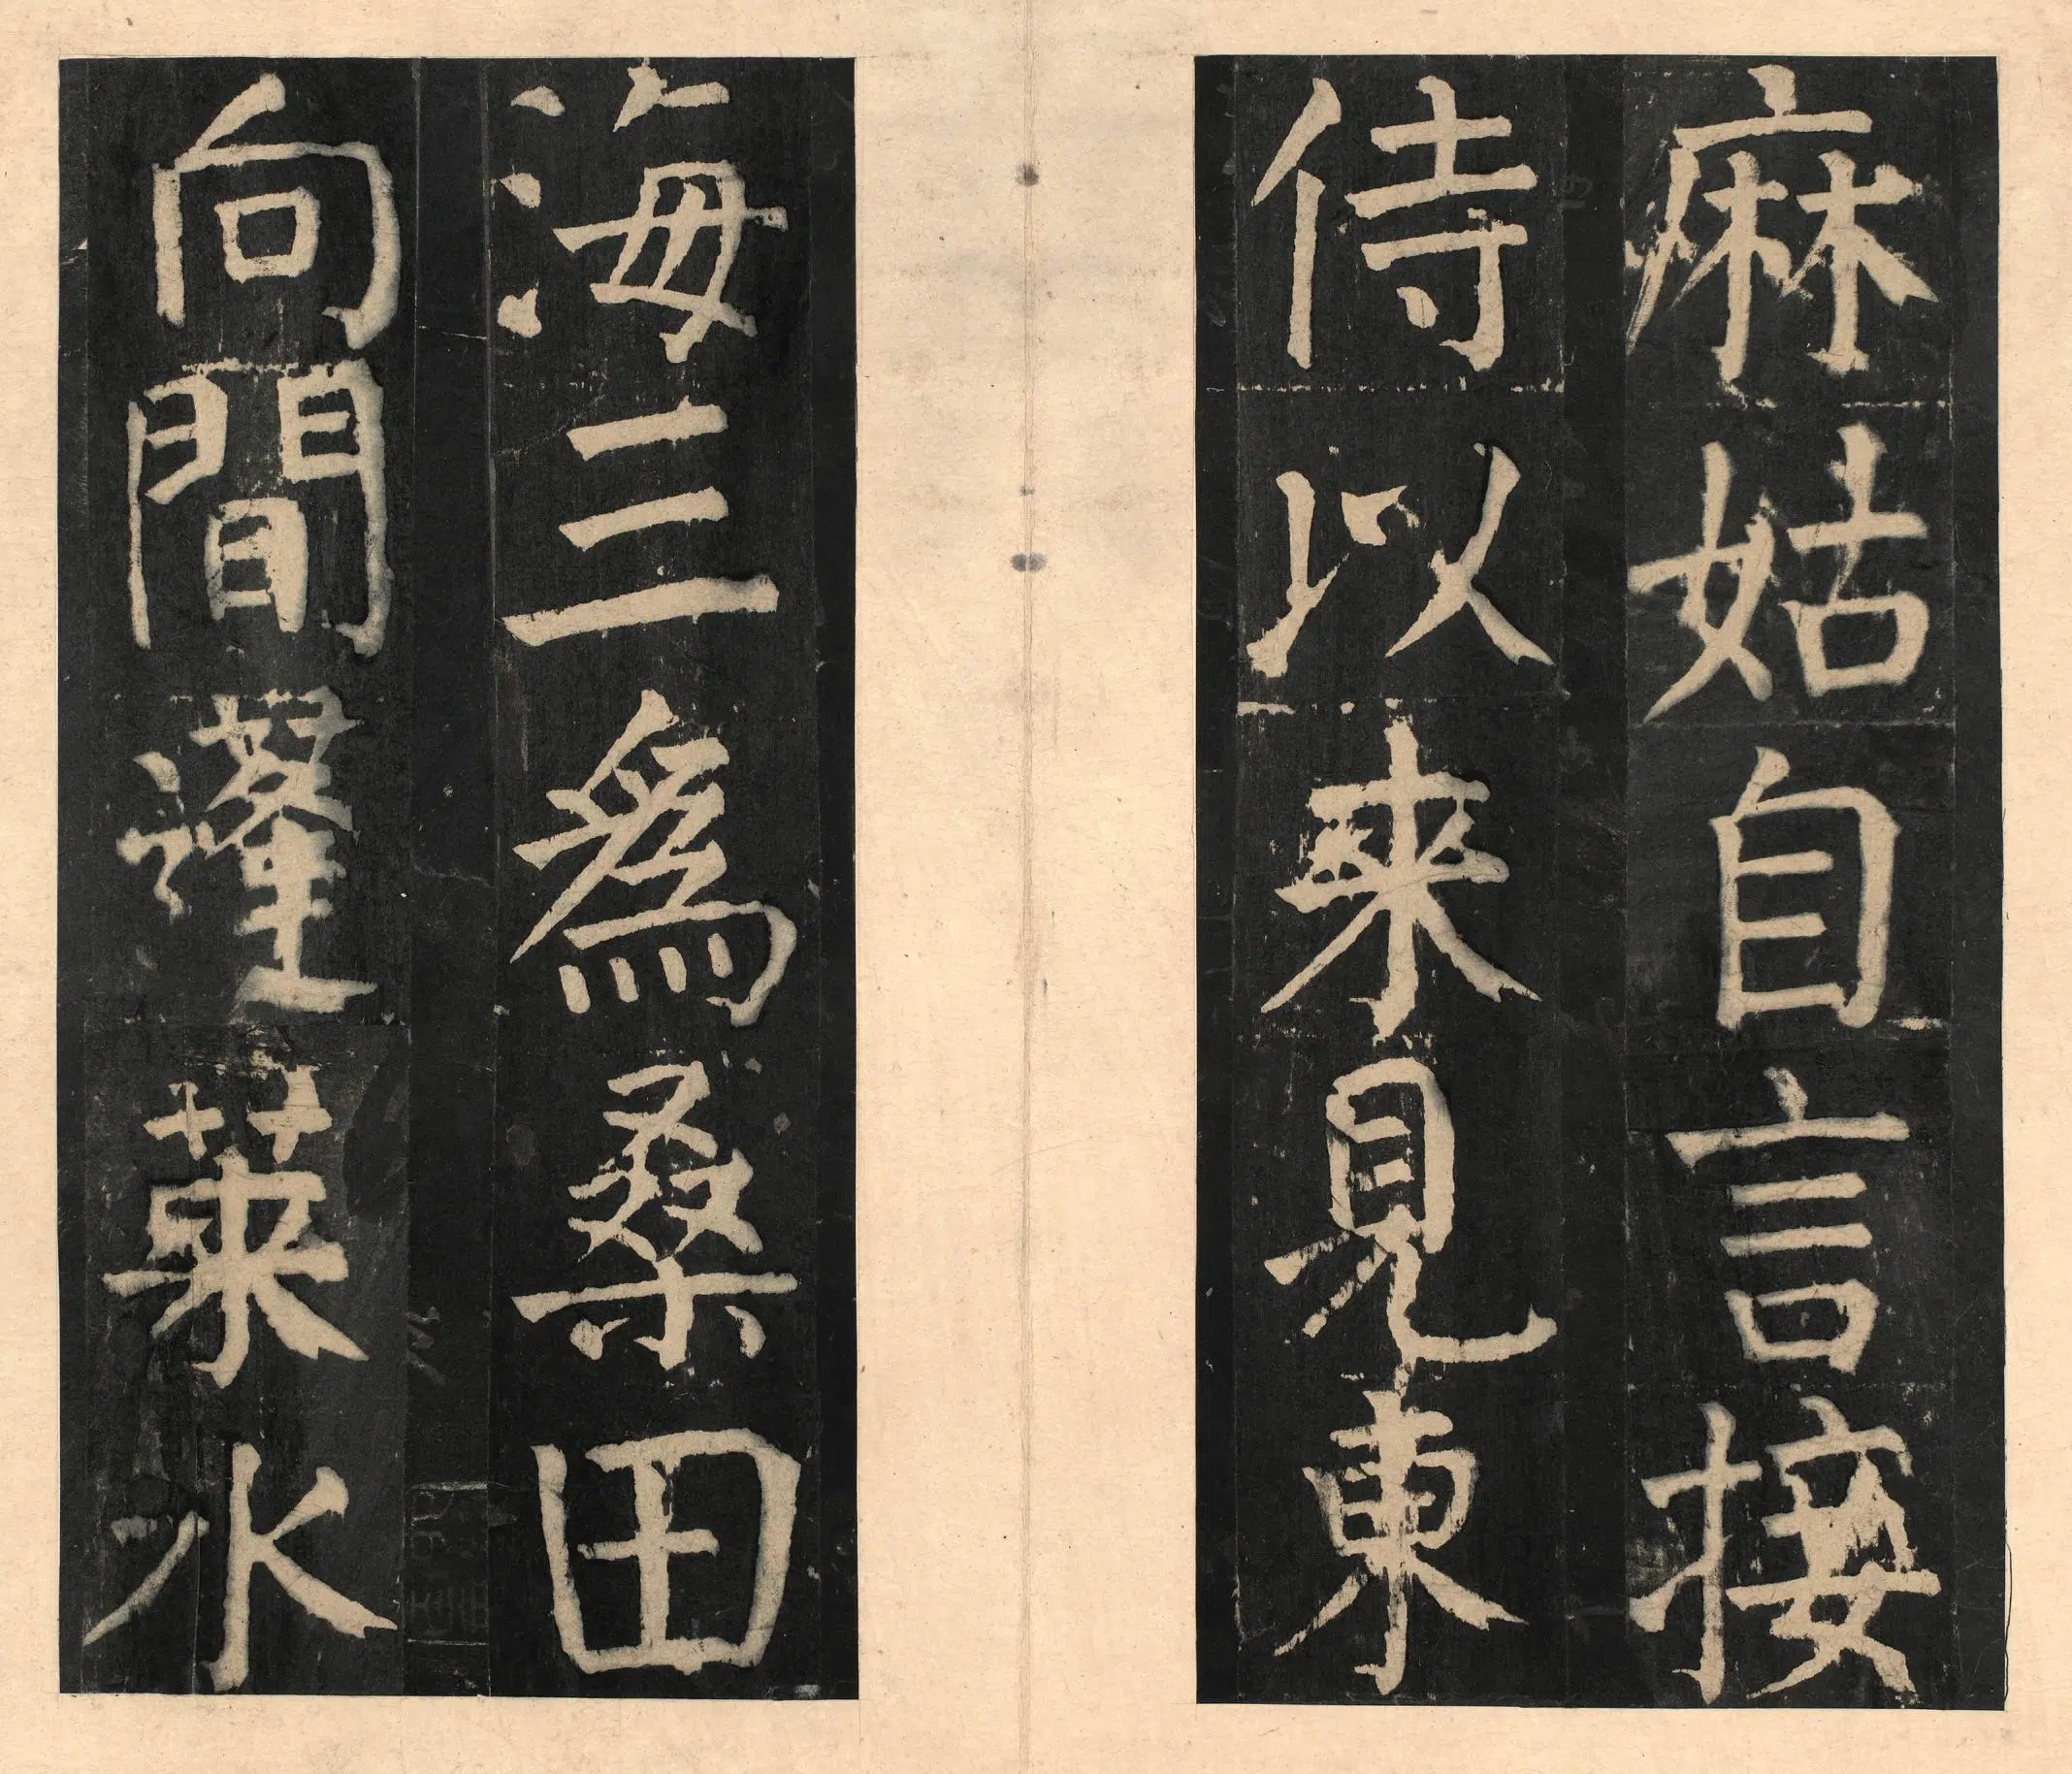 麻姑自言接
侍以来見東
海三為桑田
向間蓬萊水